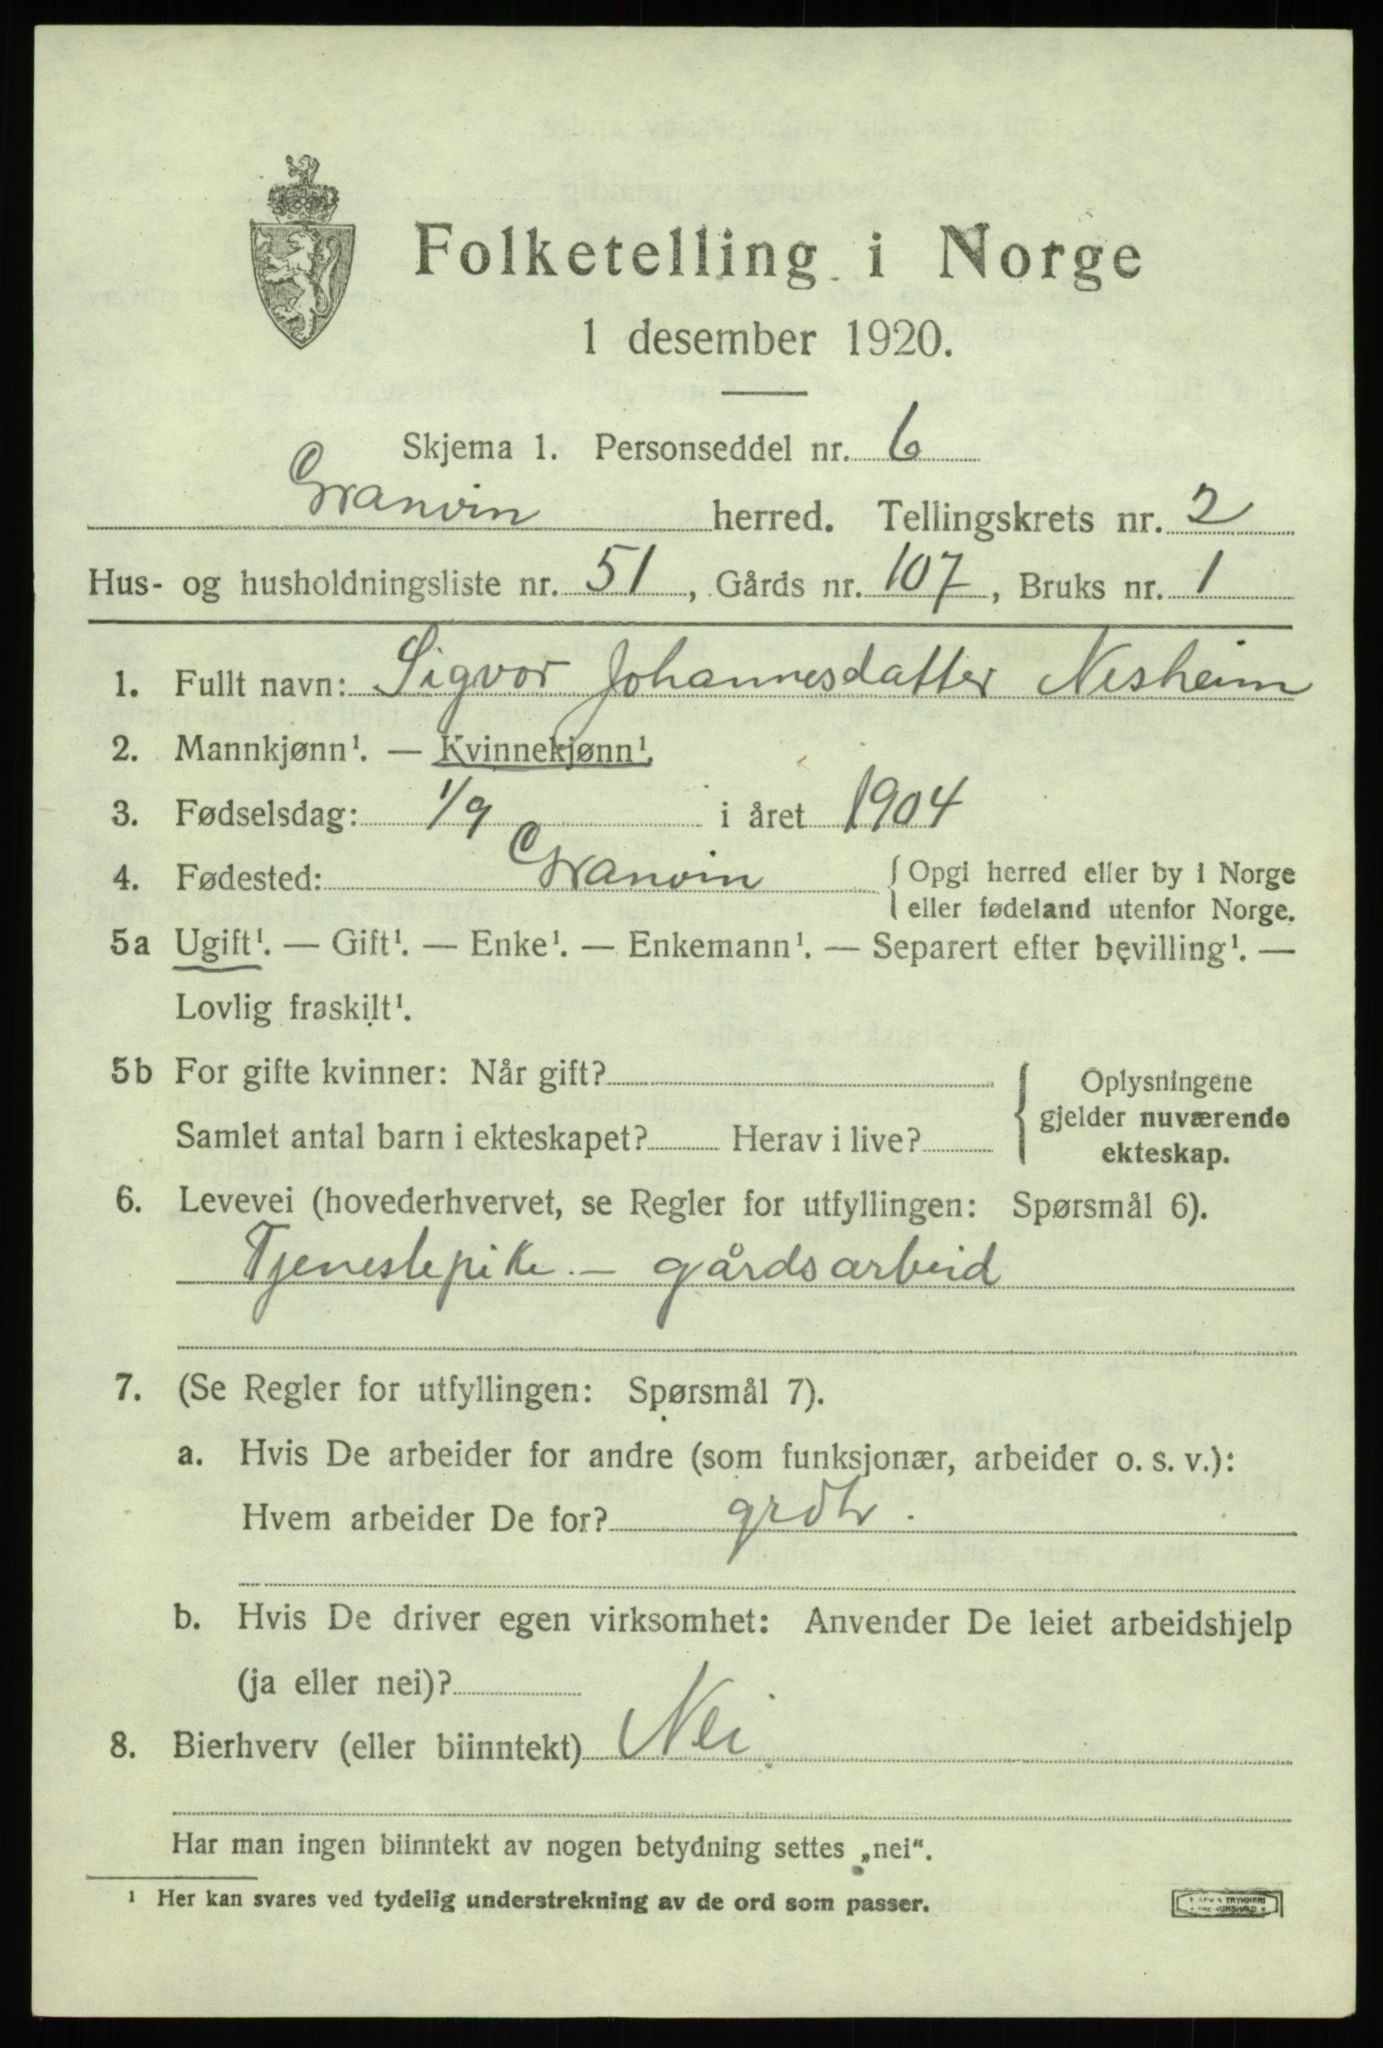 Folketelling i Norge
1 desember 1920.
Skjema 1. Personseddel nr. 6
Granvin herred. Tellingskrets nr. 2
Hus- og husholdningsliste nr. 51, Gårds nr. 107, Bruks nr. 1
1. Fullt navn: Sigvor Johannesdatter Nesheim
2. Mannkjønn¹. — Kvinnekjønn¹.
3. Fødselsdag: 1/9 i året 1904
4. Fødested: Granvin { Opgi herred eller by i Norge
eller fødeland utenfor Norge.
5a Ugift¹. — Gift¹. — Enke¹. — Enkemann¹. — Separert efter bevilling¹. —
Lovlig fraskilt¹.
5b For gifte kvinner: Når gift? { Oplysningene
gjelder nuværende
Samlet antal barn i ekteskapet? Herav i live?
ekteskap.
6. Levevei (hovederhvervet, se Regler for utfyllingen: Spørsmål 6).
Tjenestepike – gårdsarbeid
7. (Se Regler for utfyllingen: Spørsmål 7).
a. Hvis De arbeider for andre (som funksjonær, arbeider o. s. v.):
Hvem arbeider De for? grdbr.
b. Hvis De driver egen virksomhet: Anvender De leiet arbeidshjelp
(ja eller nei)?
8. Bierhverv (eller biinntekt) Nei
Har man ingen biinntekt av nogen betydning settes „nei“.
¹ Her kan svares ved tydelig understrekning av de ord som passer.